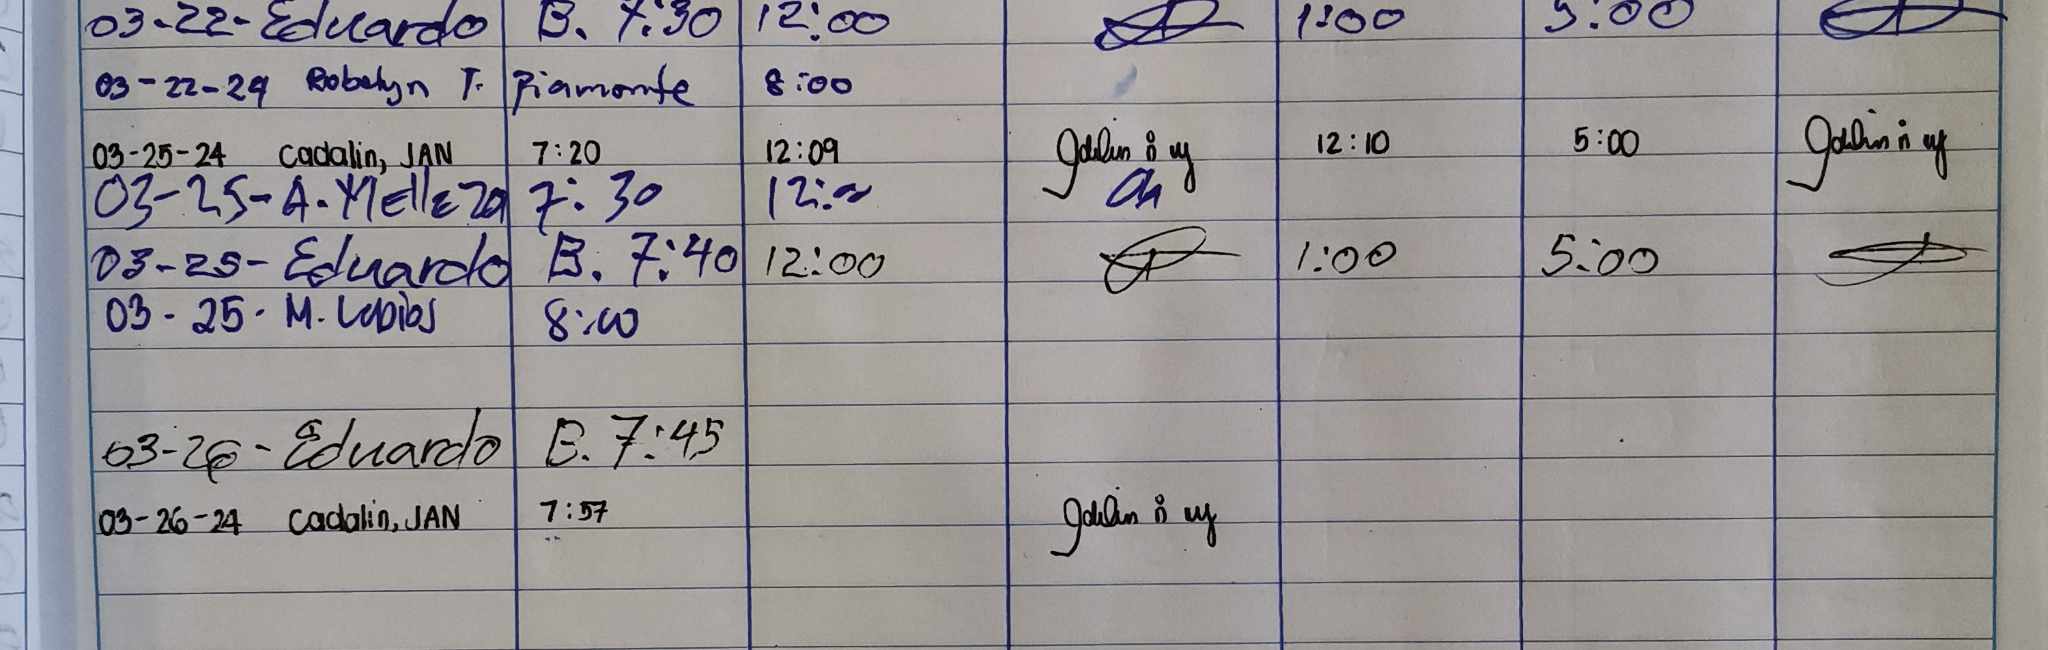 03-22-Eduardo B. 7:30 12:00 1:00 5:00
03-22-24 Robelyn T. Piamonte 8:00
03-25-24 Cadalin, JAN 7:20 12:09 12:10 5:00
03-25-A. Melleza 7:30 12:00
03-25-Eduardo B. 7:40 12:00 1:00 5:00
03-25-M. Labios 8:00
03-26-Eduardo B. 7:45
03-26-24 Cadalin, JAN 7:57